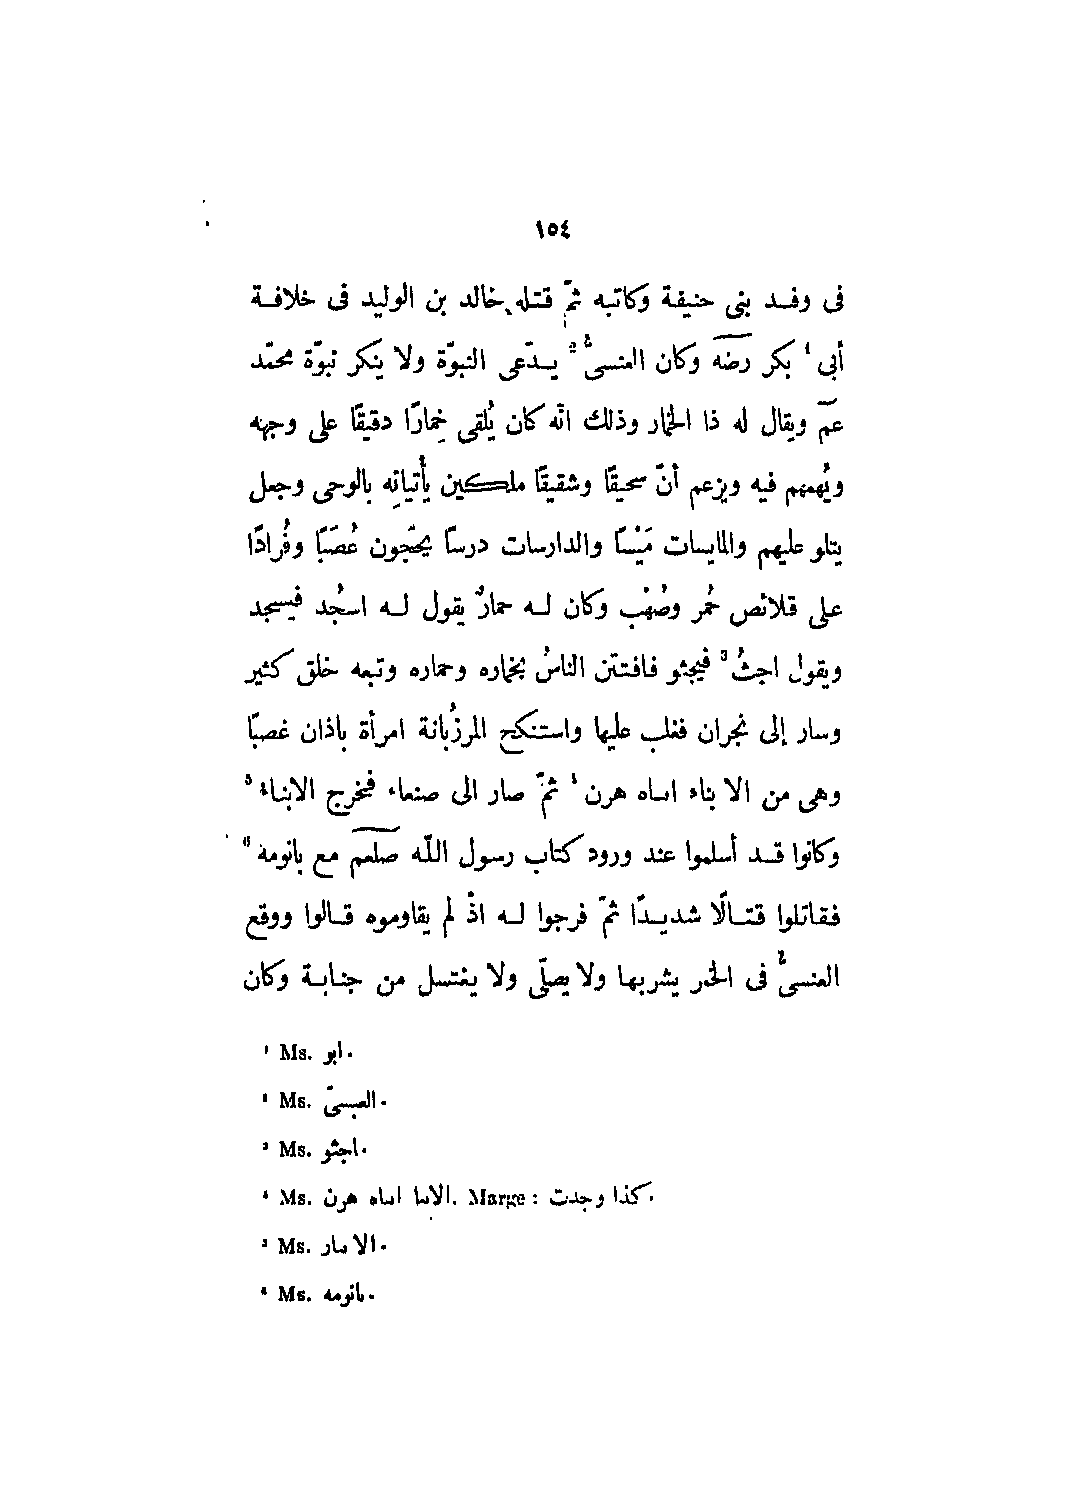 ١٥٤
فى وفد بنى حنيفة وكاتبه ثمّ قتله خالد بن الوليد فى خلافة
أبى ¹ بكر رضه وكان العنسىُّ ² يدّعى النبوّة ولا ينكر نبوّة محمّد
عم ويقال له ذا الخمار وذلك انّه كان يُلقى خِمارًا دقيقًا على وجهه
ويُهمهم فيه ويزعم أنّ سحيقًا وشقيقًا ملكين يأتيانِه بالوحى وجعل
يتلو عليهم والمايسات مَيْسًا والدارسات درسًا يحُجّون عُصَبًا وفُرادًا
على قلائص حُمر وصُهْب وكان له حمارٌ يقول له اسجُد فيسجد
ويقول اجثُ ³ فيجثو فافتتن الناسُ بخماره وحماره وتبعه خلق كثير
وسار إلى نجران فغلب عليها واستنكح المرزُبانة امرأة باذان غصبًا
وهى من الابناء اساه هرن ⁴ ثمّ صار الى صنعاء فخرج الابناء ⁵
وكانوا قد أسلموا عند ورود كتاب رسول اللّه صلعم مع بانومة ⁶
فقاتلوا قتالًا شديدًا ثمّ فرجوا له اذْ لم يقاوموه قالوا ووقع
العنسىُّ فى الخمر يشربها ولا يصلّى ولا يغتسل من جنابة وكان
¹ Ms. ابو.
² Ms. العبسىّ.
³ Ms. اجثو.
⁴ Ms. الاسا اساه هرن. Marge : كذا وجدت.
⁵ Ms. الاسار.
⁶ Ms. بانومه.